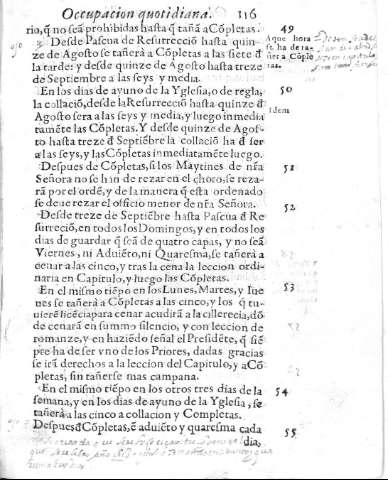 Occupacion quotidiana. 116
rio, q̃ no seã prohibidas hasta q̃ tañã a Cõpletas. 49
Desde Pascua de Resurrecciõ hasta quin-
ze de Agosto se tañerà a Cõpletas a las siete đ
la tarde: y desde quinze de Agosto hasta treze
de Septiembre a las seys y media.
A que hora
se ha de ta-
ñer a Cõple
tas.
En los dias de ayuno de la Yglesia, o de regla, 50
la collaciõ, desde la Resurrecciõ hasta quinze đ
Agosto sera a las seys y media, y luego inmedia
tamẽte las Cõpletas. Y desde quinze de Agos-
to hasta treze đ Septiẽbre la collaciõ ha đ ser
a las seys, y las Cõpletas inmediatamẽte luego.
Idem
Despues de Cõpletas, si los Maytines de nr̃a 51
Señora no se hã de rezar en el choro, se reza-
rã por el ordẽ, y de la manera q̃ esta ordenado
se deue rezar el officio menor de nr̃a Señora.
Desde treze de Septiẽbre hasta Pascua đ Re 52
surreciõ, en todos los Domingos, y en todos los
dias de guardar q̃ seã de quatro capas, y no seã
Viernes, ni Aduiẽto, ni Quaresma, se tañerà a
cenar a las cinco, y tras la cena la leccion ordi-
naria en Capitulo, y luego las Cõpletas.
En el mismo tiẽpo en los Lunes, Martes, y Iue 53
ues se tañerà a Cõpletas a las cinco, y los q̃ tu-
uierẽ licẽcia para cenar acudirã a la cillerecia, dõ
de cenarã en summo silencio, y con leccion de
romanze, y en haziẽdo señal el Presidẽte, q̃ siẽ
pre ha de ser vno de los Priores, dadas gracias
se irã derechos a la leccion del Capitulo, y a Cõ
pletas, sin tañerse mas campana.
En el mismo tiẽpo en los otros tres dias de la 54
semana, y en los dias de ayuno de la Yglesia, se
tañerà a las cinco a collacion y Completas.
Despues đ Cõpletas, ẽ aduiẽto y quaresma cada 55
dia,